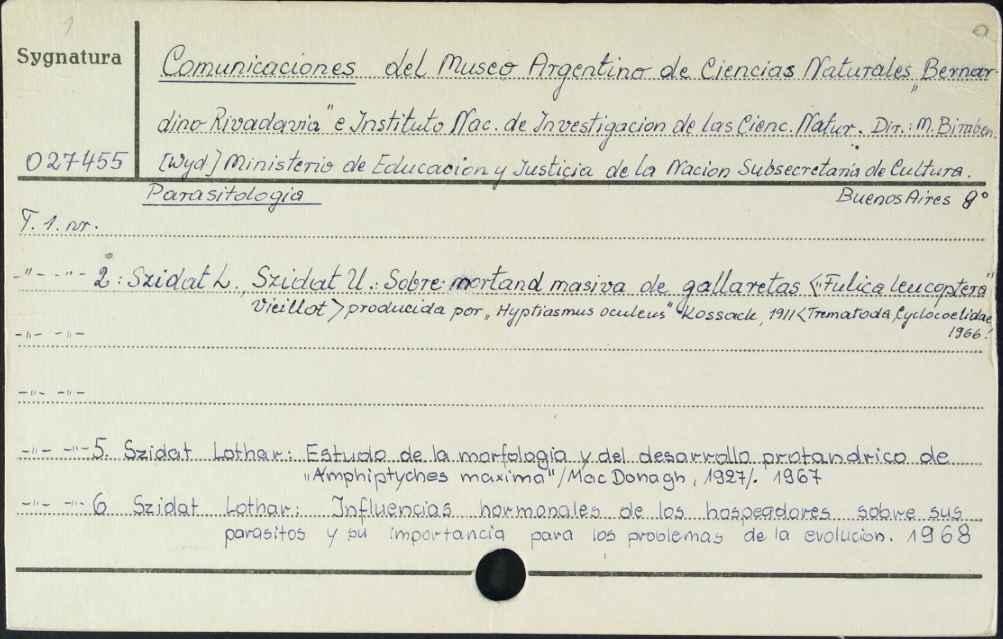 1
Sygnatura
Comunicaciones del Museo Argentino de Ciencias Naturales „Bernar-
dino Rivadavia" e Instituto Nac. de Investigacion de las Cienc. Natur. Dir.: M. Biraben
027455 [Wyd] Ministerio de Educacion y Justicia de la Nacion Subsecretaria de Cultura.
Parasitologia Buenos Aires 8°
T. 1. nr.
-"- -"- 2: Szidat L., Szidat U.: Sobre mortand masiva de gallaretas <"Fulica leucoptera"
Vieillot> producida por „Hyptiasmus oculeus" Kossack, 1911 <Trematoda, Cyclocoelidae
-"- -"- 1966.
-"- -"-
-"- -"- 5. Szidat Lothar: Estudo de la morfologia y del desarrollo protandrico de
„Amphiptyches maxima"/Mac Donagh, 1927/. 1967
-"- -"- 6 Szidat Lothar: Influencias hormonales de los hospeadores sobre sus
parasitos y su importancia para los problemas de la evolucion. 1968